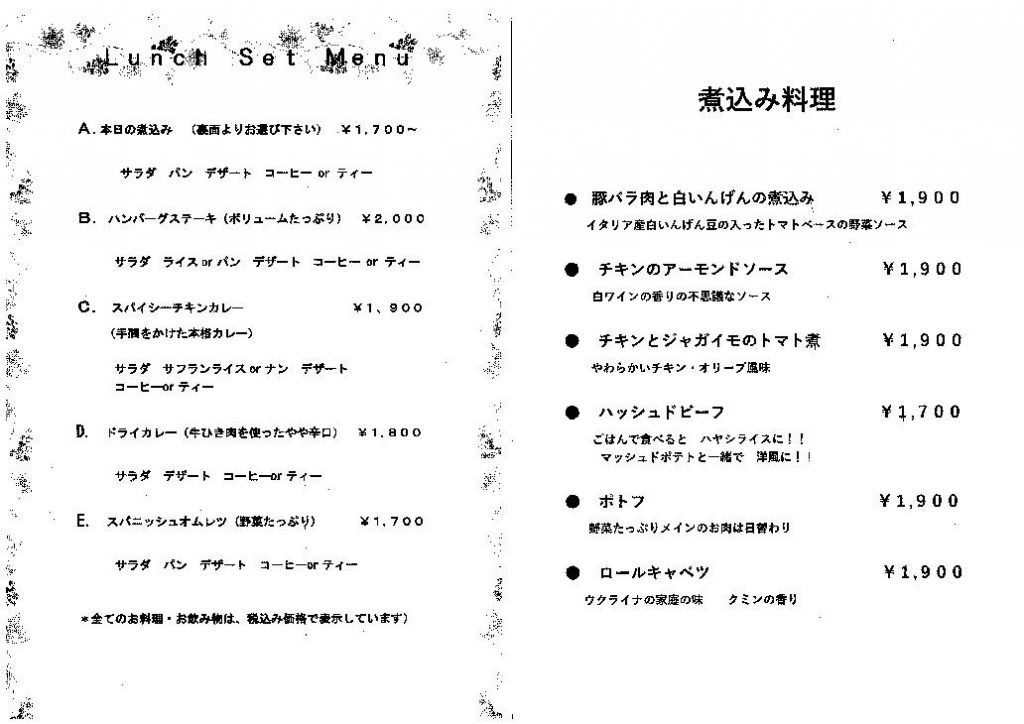 Lunch Set Menu
A. 本日の煮込み （裏面よりお選び下さい） ￥1,700～
サラダ パン デザート コーヒー or ティー
B. ハンバーグステーキ（ボリュームたっぷり） ￥2,000
サラダ ライス or パン デザート コーヒー or ティー
C. スパイシーチキンカレー ￥1、900
（手間をかけた本格カレー）
サラダ サフランライス or ナン デザート
コーヒーor ティー
D. ドライカレー（牛ひき肉を使ったやや辛口） ￥1,800
サラダ デザート コーヒーor ティー
E. スパニッシュオムレツ（野菜たっぷり） ￥1,700
サラダ パン デザート コーヒーor ティー
＊全てのお料理・お飲み物は、税込み価格で表示しています）
煮込み料理
● 豚バラ肉と白いんげんの煮込み ￥1,900
イタリア産白いんげん豆の入ったトマトベースの野菜ソース
● チキンのアーモンドソース ￥1,900
白ワインの香りの不思議なソース
● チキンとジャガイモのトマト煮 ￥1,900
やわらかいチキン・オリーブ風味
● ハッシュドビーフ ￥1,700
ごはんで食べると ハヤシライスに！！
マッシュドポテトと一緒で 洋風に！！
● ポトフ ￥1,900
野菜たっぷりメインのお肉は日替わり
● ロールキャベツ ￥1,900
ウクライナの家庭の味 クミンの香り